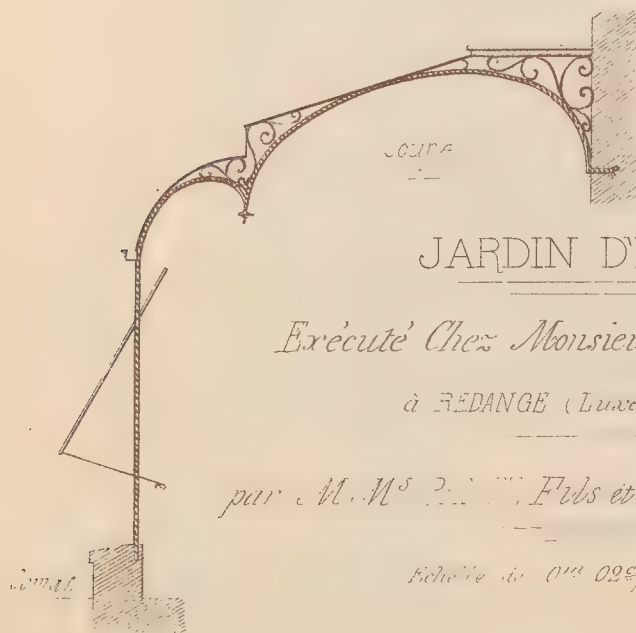 Coupe
JARDIN D'
Exécuté Chez Monsieu
à REDANGE (Lux
par M.Mˢ Fils et
Echelle de 0ᵐ 02ᶜ